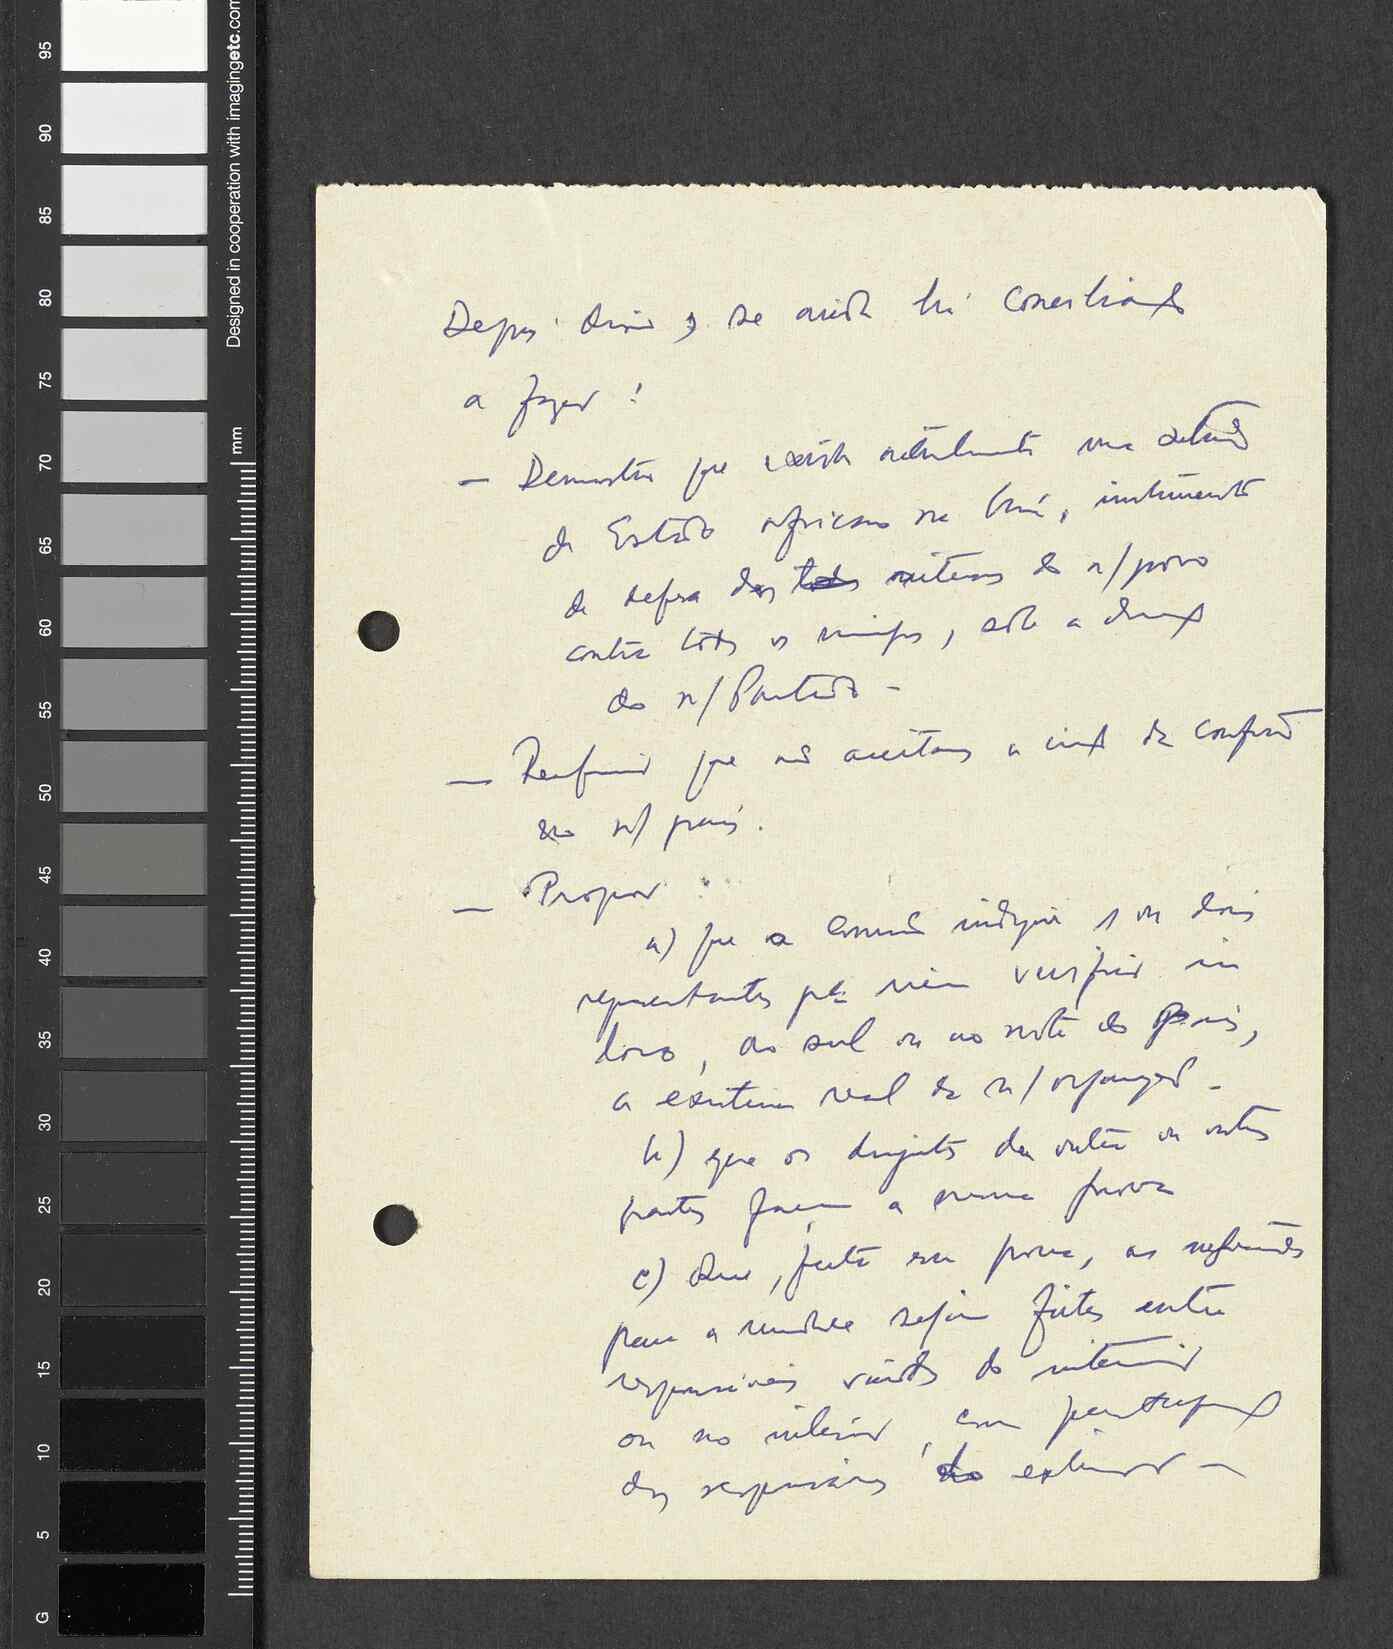 95
90
85
80
75
70
65
60
55
50
45
40
35
30
25
20
15
10
5
G
Designed in cooperation with imagingetc.com
mm
se ainda há conciliação
a fazer!
— Demonstrar que existe uma
de Estado africano na Guiné, instrumento
de defesa dos todos do n/povo
contra todos os inimigos, sob a direcção
do n/Partido -
— Reafirmar que não aceitamos a de confusão
no n/ país.
— Propor:
a) que o Comité indique 1 ou dois
representantes pª virem verificar in
loco, ao sul ou ao norte do País,
a existência real da n/organização -
b) que os dirigentes da outra ou outras
partes façam a mesma prova
c) Que, feita essa prova, as negociações
para a unidade sejam feitas entre
responsáveis vindos do interior
ou no interior, com participação
dos responsáveis do exterior -